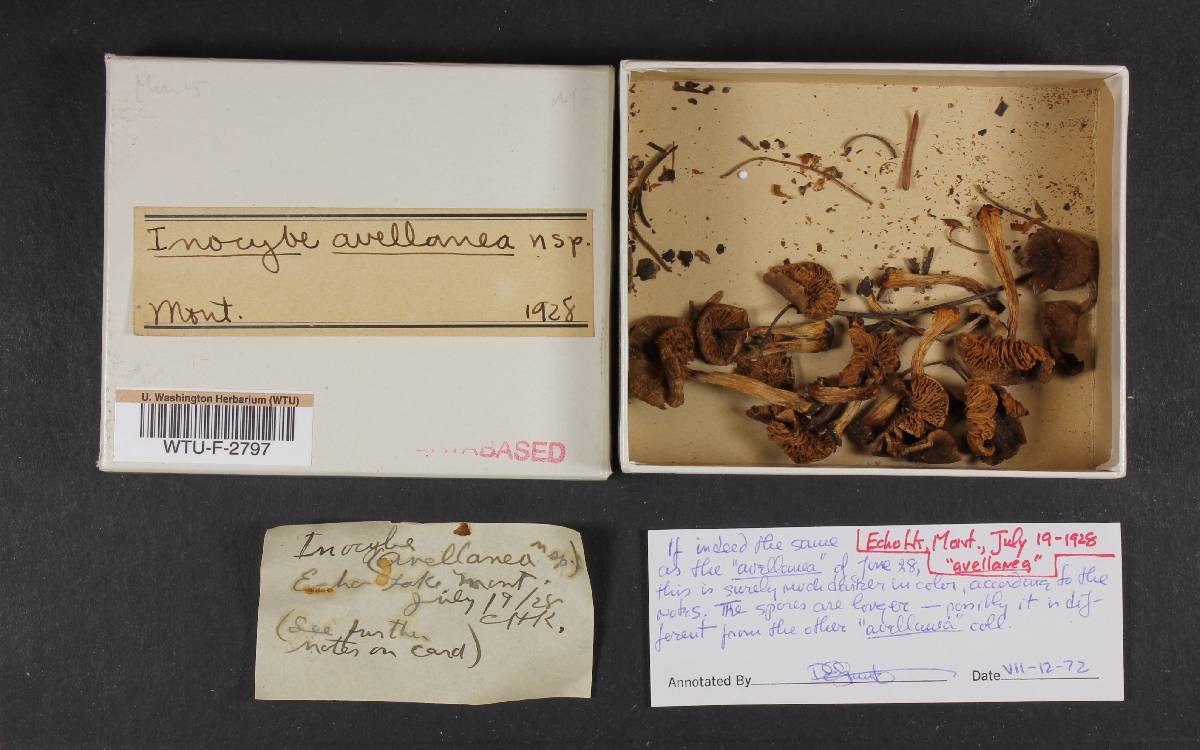 Inocybe avellanea nsp.
Mont. 1928
U. Washington Herbarium (WTU)
WTU-F-2797
DATABASED
Inocybe
(avellanea nsp.)
Echo Lake Mont.
July 19/28
CHK.
(See further
notes on card)
Echo Lk, Mont., July 19-1928
"avellanea"
If indeed the same
as the "avellanea" of June 28,
this is surely much darker in color, according to the
notes. The spores are longer — possibly it is dif-
ferent from the other "avellanea" coll.
Annotated By Date VII-12-72